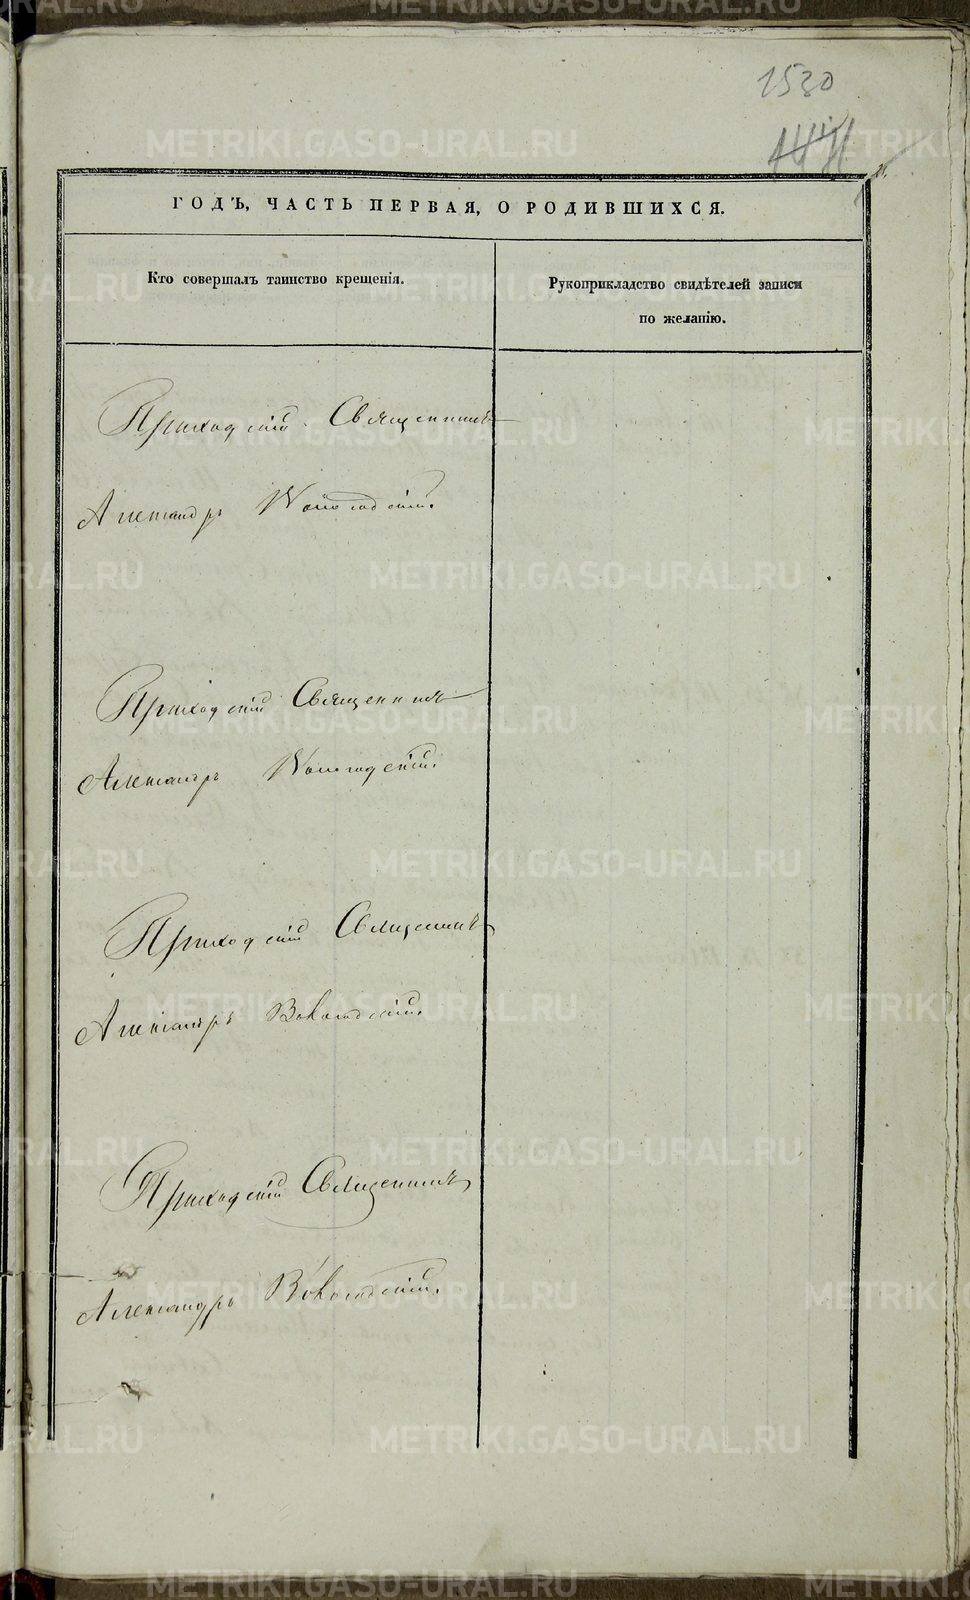 1530
ГОДЪ, ЧАСТЬ ПЕРВАЯ, О РОДИВШИХСЯ.
Кто совершалъ таинство крещенія.
Рукоприкладство свидѣтелей записи
по желанію.
Приходскій Священникъ
Александръ Вологодскій.
Приходскій Священникъ
Александръ Вологодскій.
Приходскій Священникъ
Александръ Вологодскій.
Приходскій Священникъ
Александръ Вологодскій.
METRIKI.GASO-URAL.RU